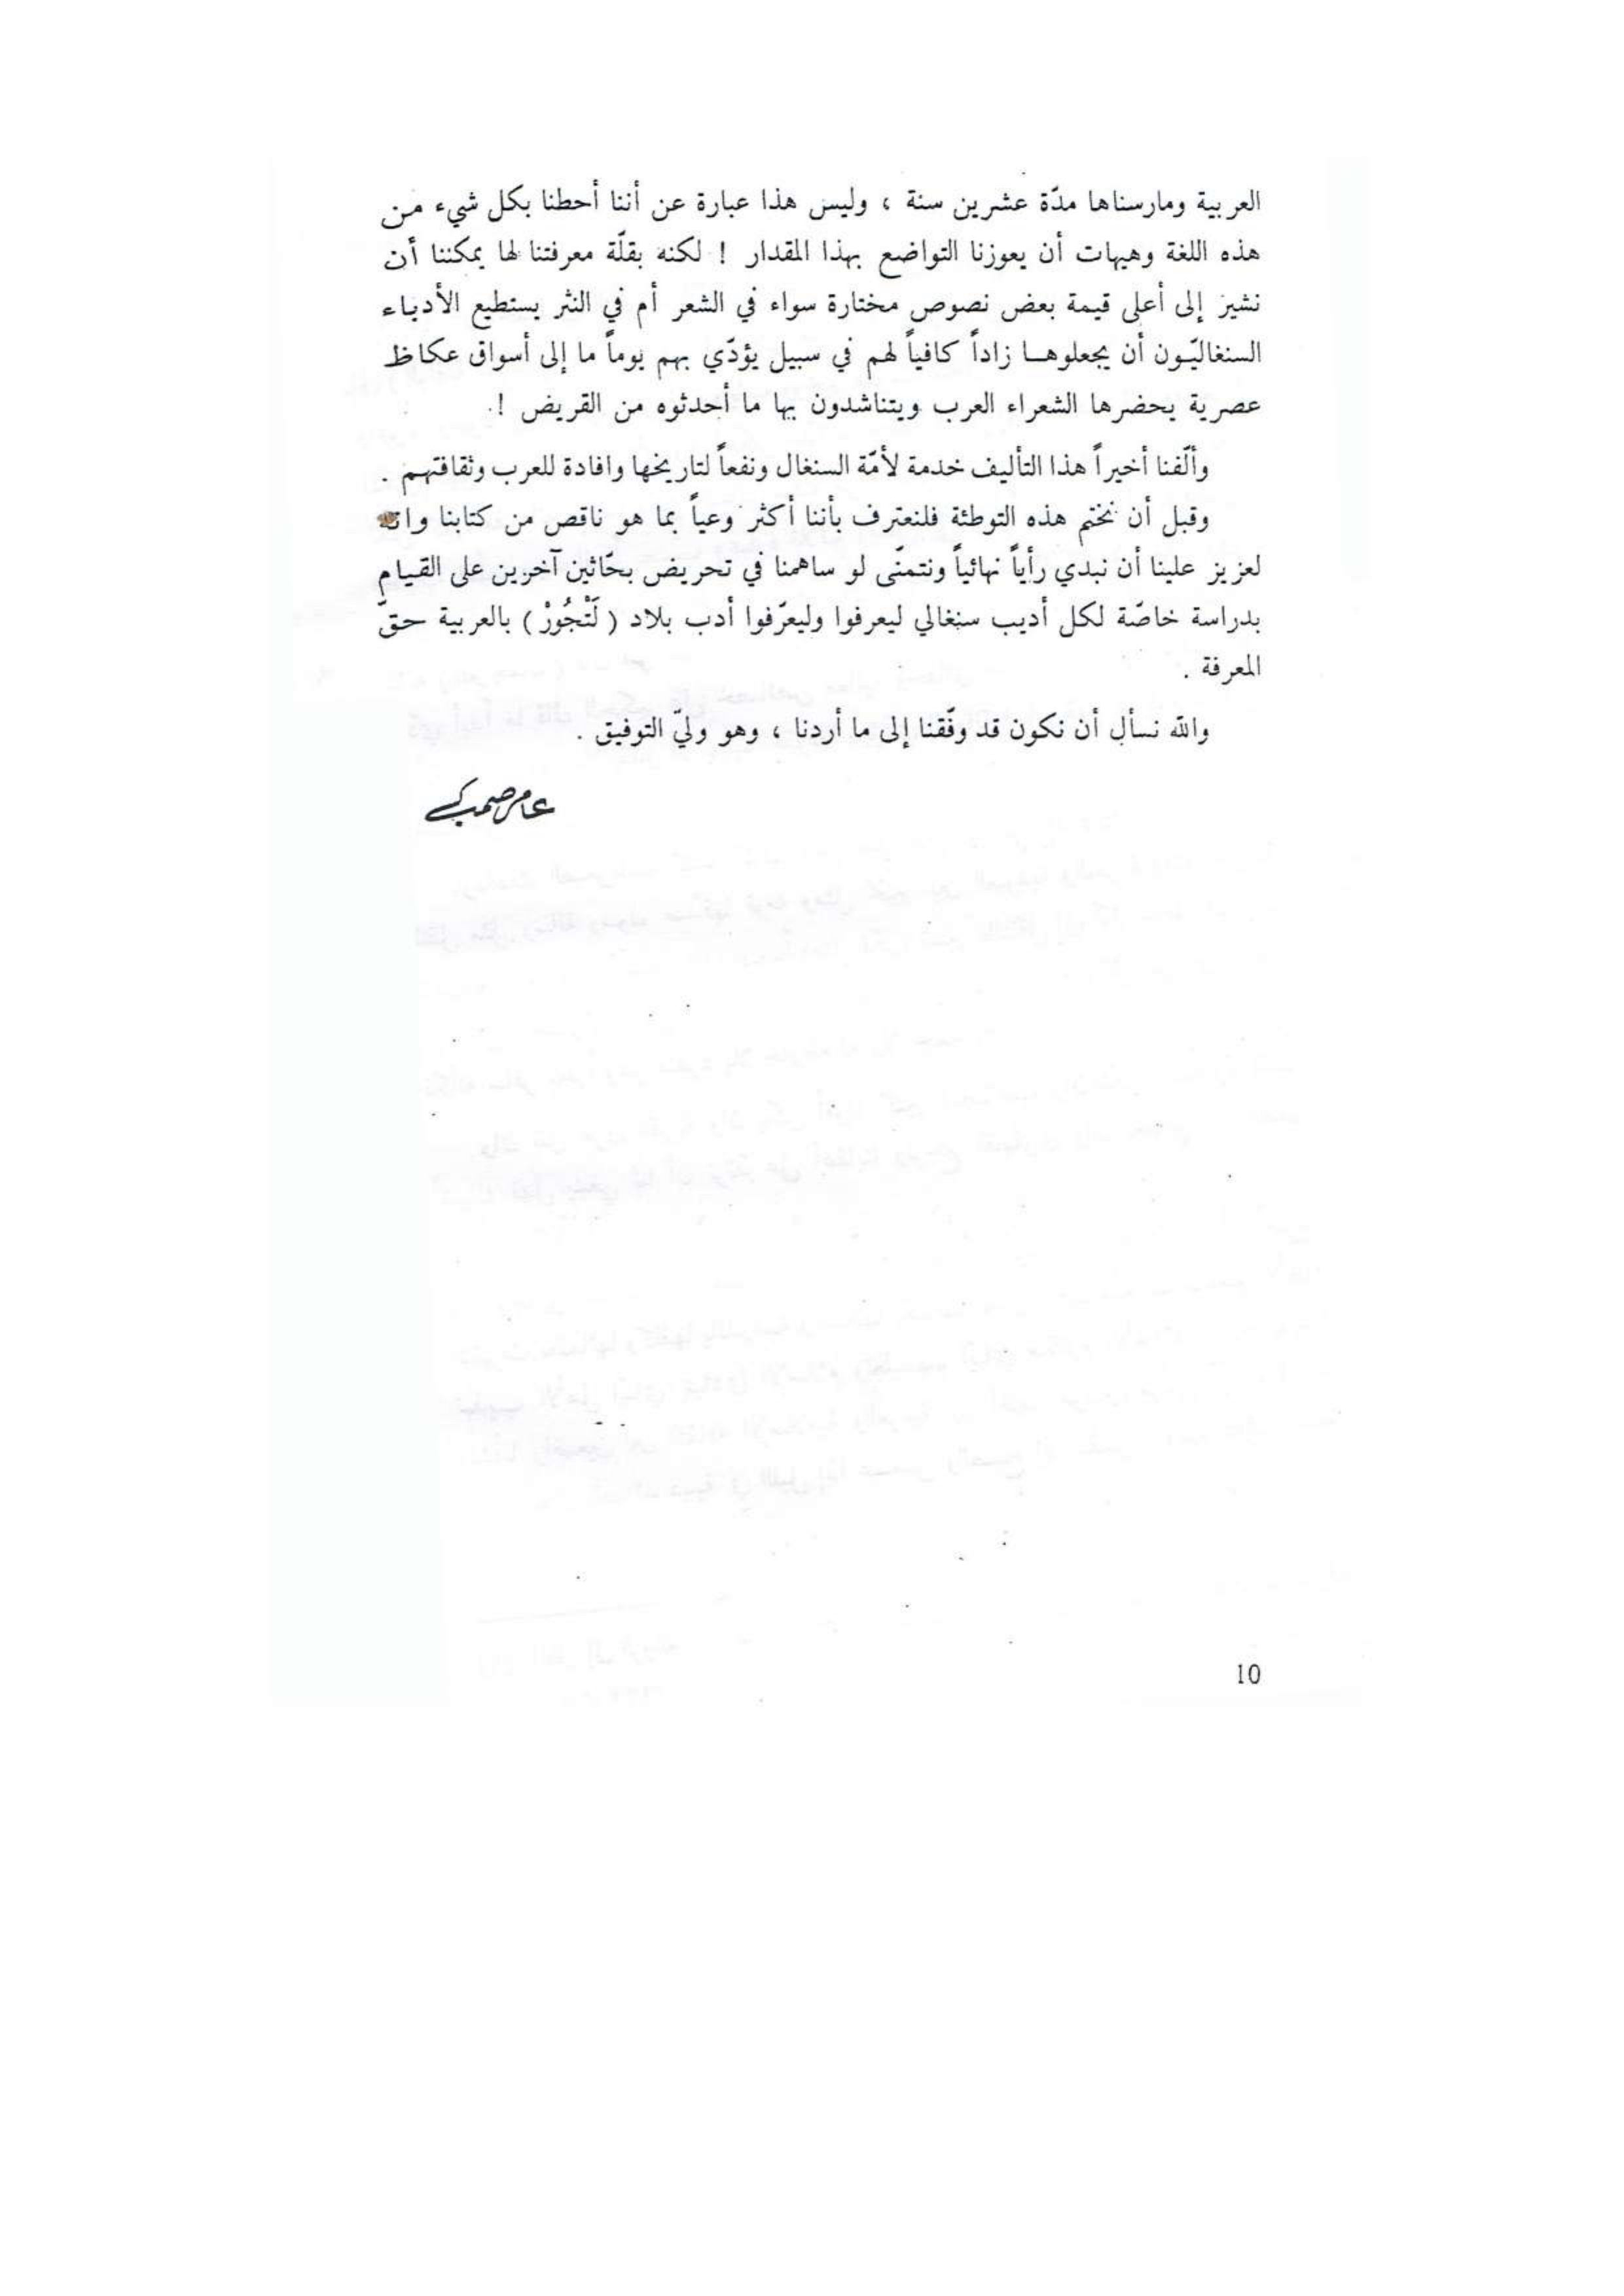 العربية ومارسناها مدّة عشرين سنة ، وليس هذا عبارة عن أننا أحطنا بكل شيء من
هذه اللغة وهيهات أن يعوزنا التواضع بهذا المقدار ! لكنه بقلّة معرفتنا لها يمكننا أن
نشير إلى أعلى قيمة بعض نصوص مختارة سواء في الشعر أم في النثر يستطيع الأدباء
السنغاليّون أن يجعلوهـا زاداً كافياً لهم في سبيل يؤدّي بهم يوماً ما إلى أسواق عكاظ
عصرية يحضرها الشعراء العرب ويتناشدون بها ما أحدثوه من القريض !.
وألّفنا أخيراً هذا التأليف خدمة لأمّة السنغال ونفعاً لتاريخها وافادة للعرب وثقافتهم .
وقبل أن نختم هذه التوطئة فلنعترف بأننا أكثر وعياً بما هو ناقص من كتابنا وانه
لعزيز علينا أن نبدي رأياً نهائياً ونتمنّى لو ساهمنا في تحريض بحّاثين آخرين على القيام
بدراسة خاصّة لكل أديب سنغالي ليعرفوا وليعرّفوا أدب بلاد ( لَتْجُورْ ) بالعربية حقّ
المعرفة .
والله نسأل أن نكون قد وفّقنا إلى ما أردنا ، وهو وليّ التوفيق .
عامر صمب
10